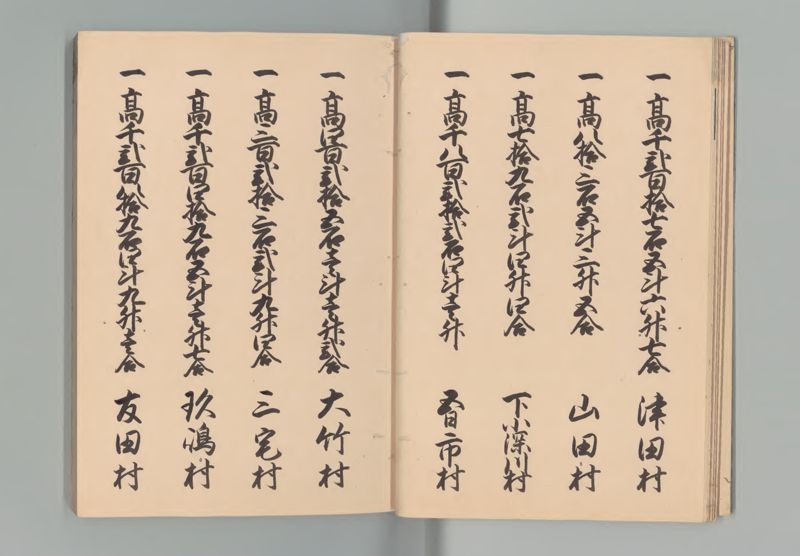 一 高千弐百拾七石五斗六升七合 津田村
一 高八拾三石五斗三升五合 山田村
一 高七拾九石弐斗四升四合 下小深川村
一 高千八百弐拾弐石四斗壱升 五日市村
一 高四百弐拾五石壱斗壱升弐合 大竹村
一 高三百弐拾三石弐斗九升四合 三宅村
一 高千弐百四拾九石五斗壱升七合 玖嶋村
一 高千弐百八拾九石四斗九升壱合 友田村